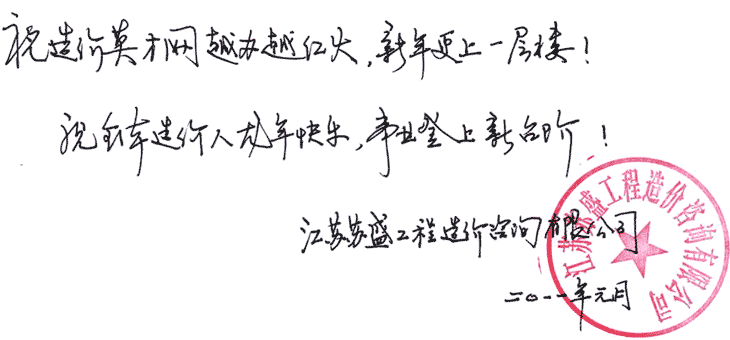 祝造价英才网越办越红火,新年更上一层楼!
祝全体造价人龙年快乐,事业登上新台阶!
江苏苏盛工程造价咨询有限公司
二〇一一年元月
江苏苏盛工程造价咨询有限公司